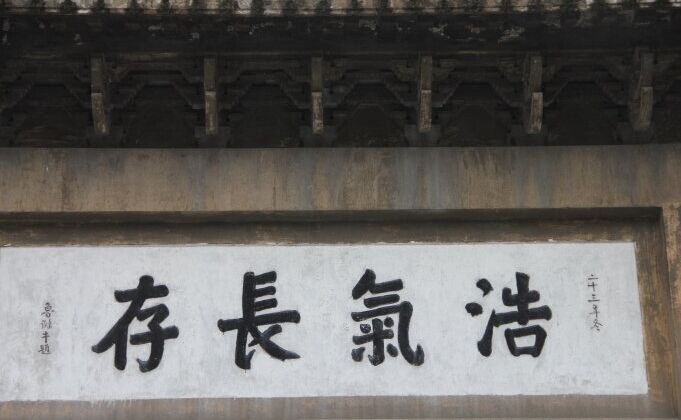 二十三年冬
浩氣長存
魯滌平題